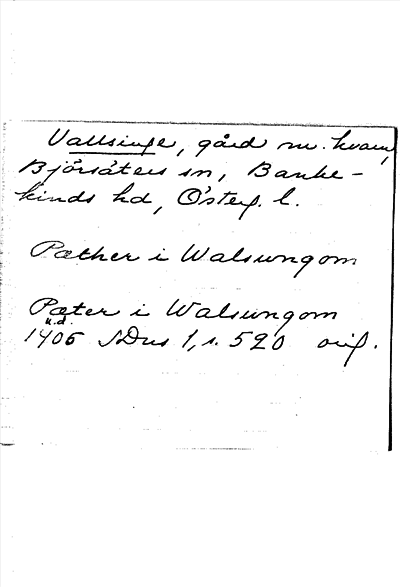 Vallsinge, gård m. kvarn,
Björsäters sn, Banke-
kinds hd, Österg. l.
Pæther i Walsungom
Pæter i Walsungom
u.d.
1406 SDns 1, s. 520 orig.